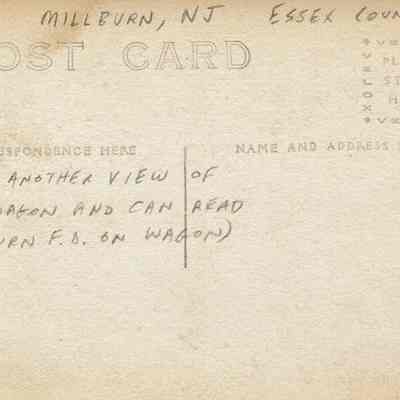 MILLBURN, NJ ESSEX COUN
OST CARD
VELOX
PL
ST
H
SPONDENCE HERE
NAME AND ADDRESS
ANOTHER VIEW OF
WAGON AND CAN READ
URN F.D. ON WAGON)